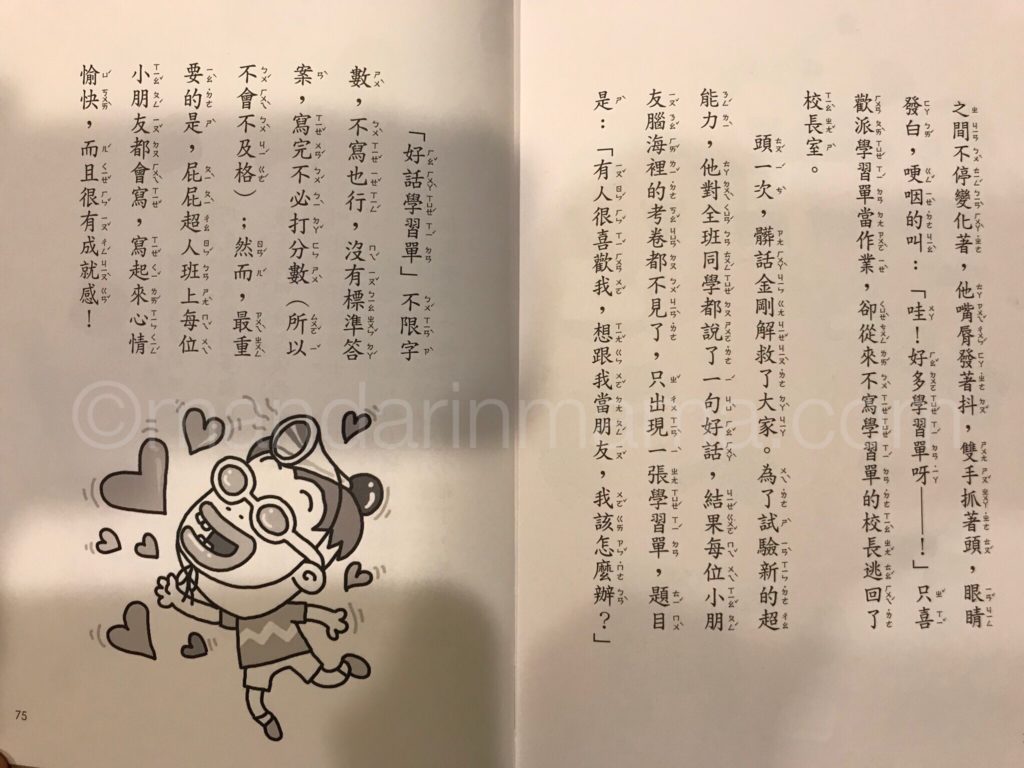 之間不停變化著，他嘴脣發著抖，雙手抓著頭，眼睛
發白，哽咽的叫：「哇！好多學習單呀——！」只喜
歡派學習單當作業，卻從來不寫學習單的校長逃回了
校長室。
頭一次，髒話金剛解救了大家。為了試驗新的超
能力，他對全班同學都說了一句好話，結果每位小朋
友腦海裡的考卷都不見了，只出現一張學習單，題目
是：「有人很喜歡我，想跟我當朋友，我該怎麼辦？」
「好話學習單」不限字
數，不寫也行，沒有標準答
案，寫完不必打分數（所以
不會不及格）；然而，最重
要的是，屁屁超人班上每位
小朋友都會寫，寫起來心情
愉快，而且很有成就感！
75
©mandarinmama.com